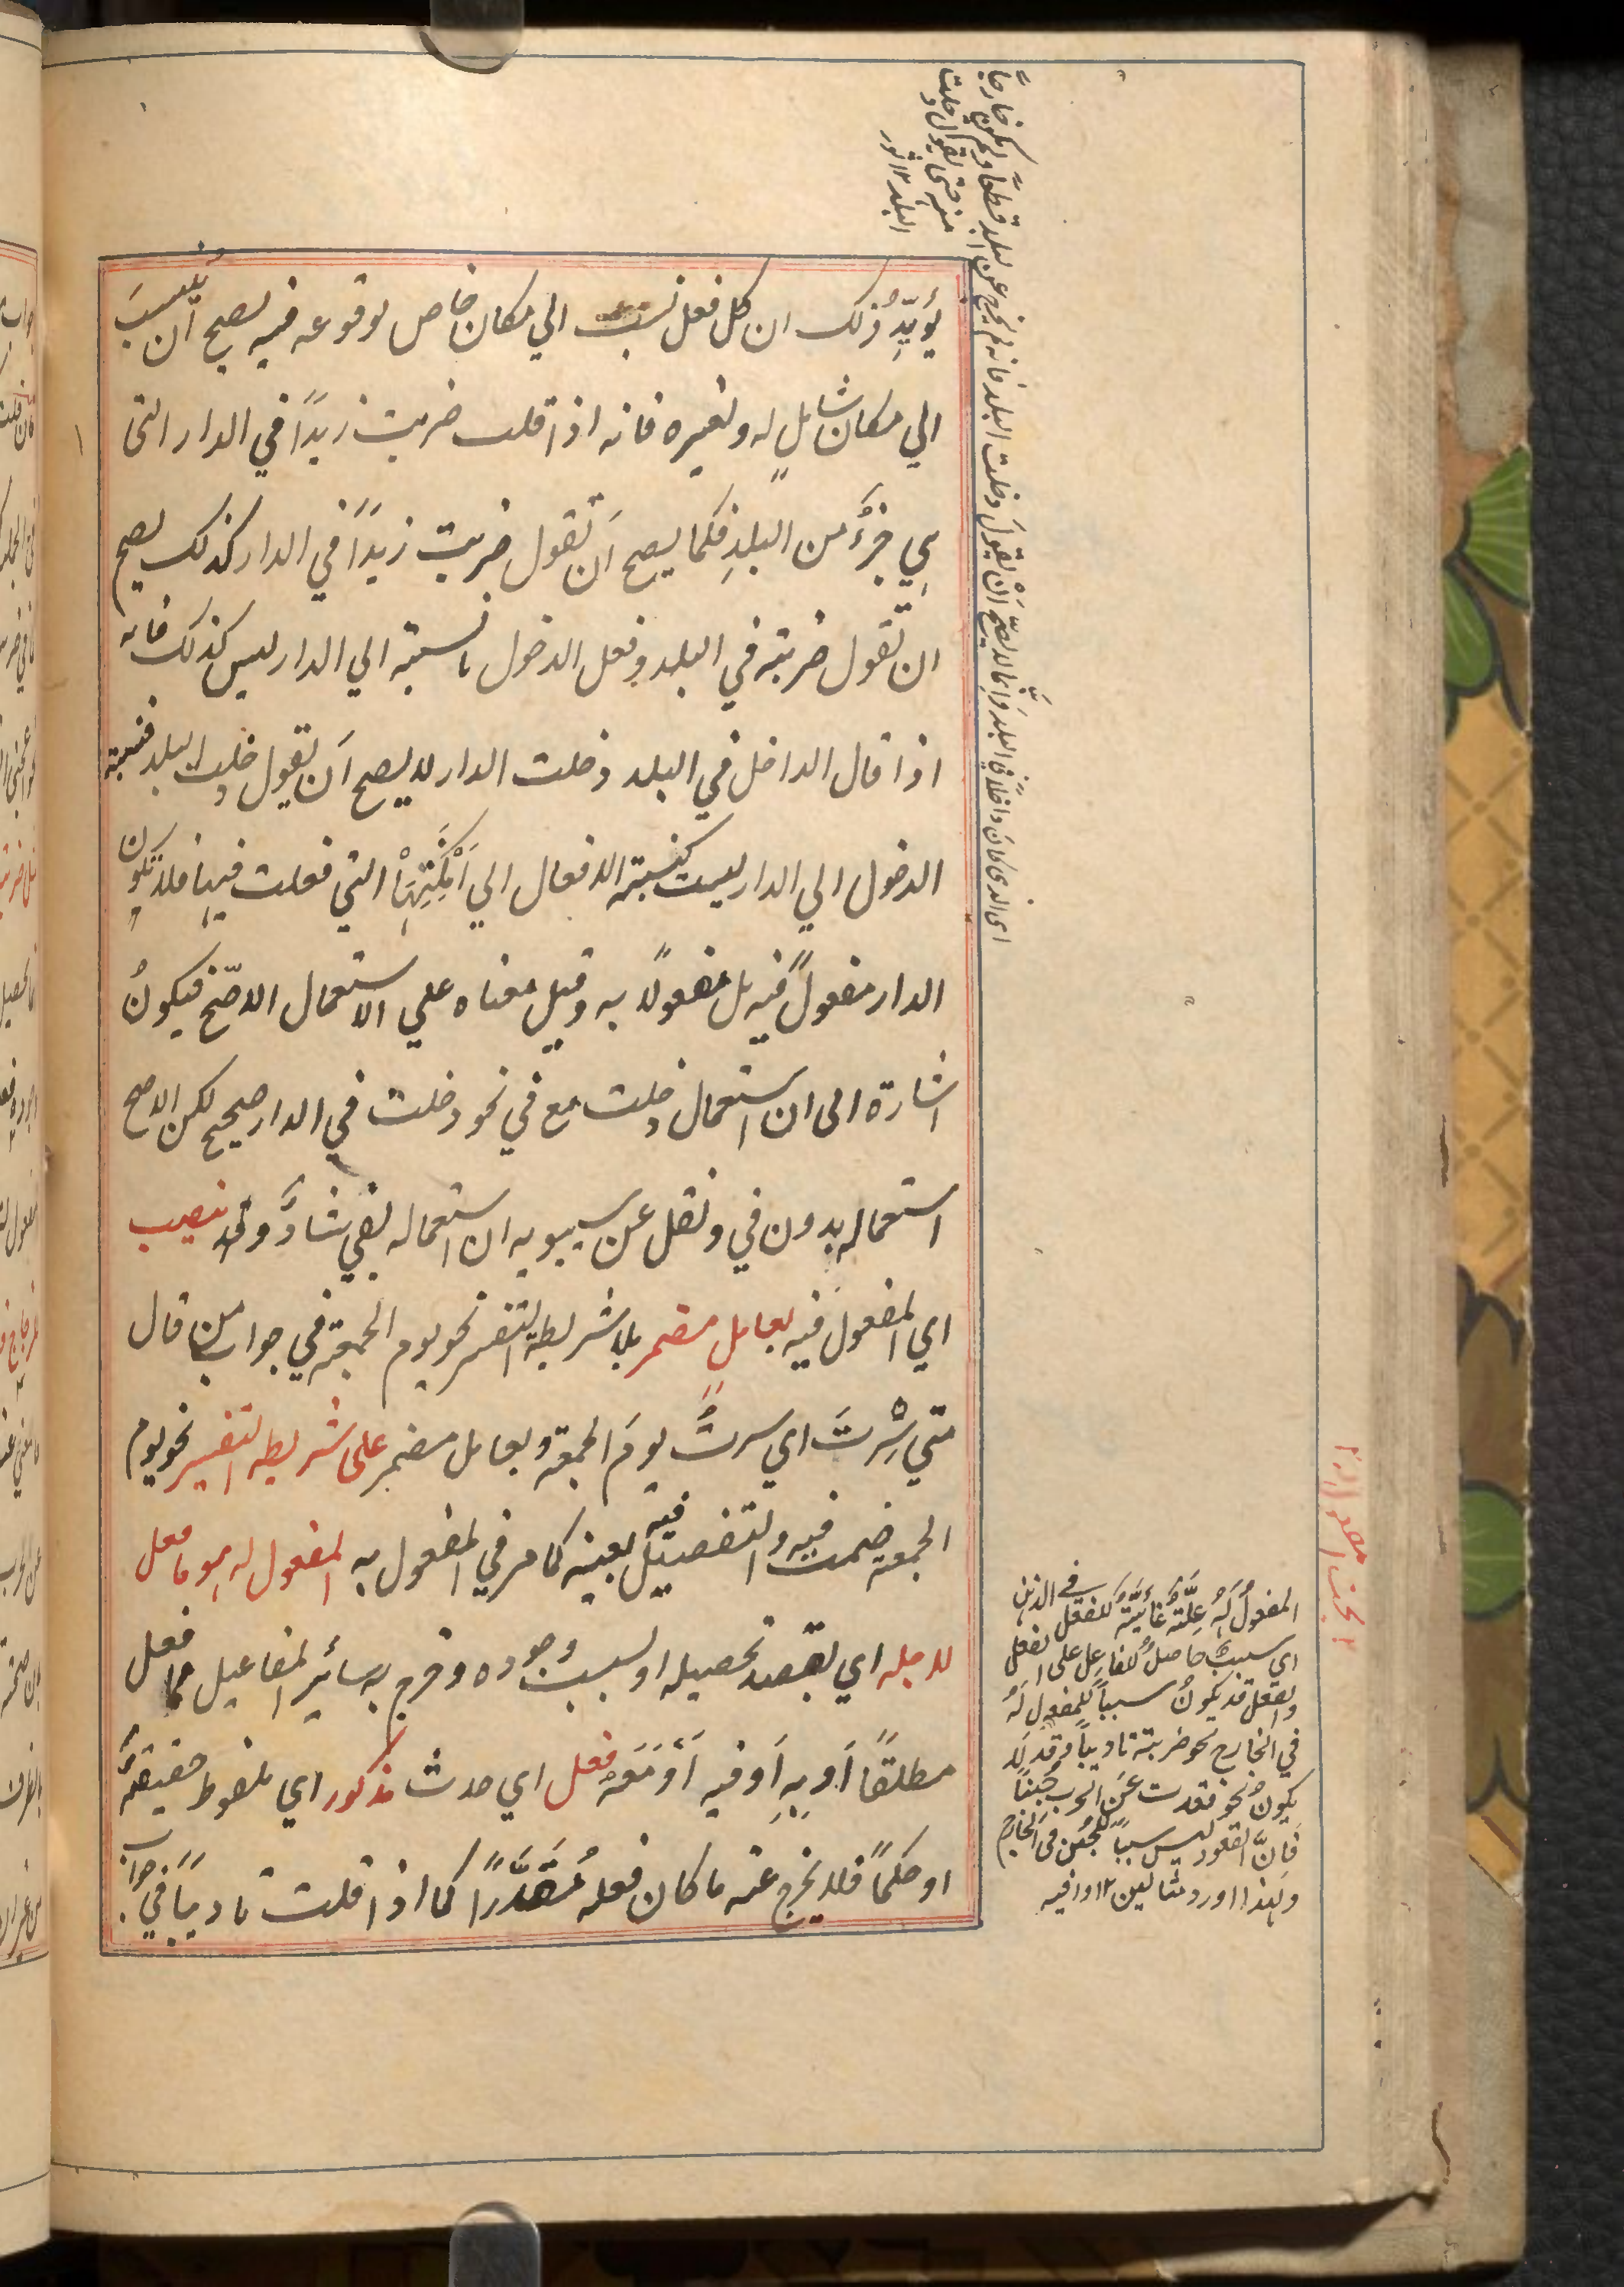 يؤيّد ذلك ان كل فعل نسب الي مكان خاص لوقوعه فيه يصح ان ينسبَ
الي مكان شاملٍ له ولغيره فانه اذا قلت ضربت زيدًا في الدار التى
هي جزءٌ من البلدِ فكما يصح اَن تقول ضربت زيدًا في الدار كذلك يصح
ان تقول ضربته في البلد وفعل الدخول بالنسبته الي الدار ليس كذلك فانه
اذا قال الداخل في البلد دخلت الدار لا يصح اَن يقول دخلت البلد فنسبته
الدخول الي الدار ليست كنسبته الافعال الي اَمْكَنِتِهَا التي فعلت فيها فلا تكون
الدار مفعولً فيه بل مفعولًا به وقيل معناه علي الاستعمال الاصّح فيكونُ
اشارة الى ان استعمال دخلت مع في نحو دخلت في الدار صحيح لكن الاصح
استعماله بدون في ونقل عن سيبويه ان استعماله بفي شاذّ وقد ينصب
اي المفعولَ فيه بعاملٍ مضمر بلا شريطه التفسير نحو يوم الجمعته في جواب من قال
متي سِرْتَ اي سرتُ يومَ الجمعته وبعامل مضمر على شريطه التفسير نحو يوم
الجمعته ضمت فيه والتفصيل فيه بعينه كما مر في المفعول به المفعول له هو ما فعل
لاجله اي بقصد تحصيله او لسبب وجوده وخرج به سائر المفاعيل مما فعل
مطلقًا اَو بِهِ اَو فيه اَوْ مَعَهُ فعل اي حدث مذكور اي ملفوظ حقيقتهً
او حكمًا فلا يخرج عنه ما كان فعله مُقَدَّرًا كما اذا قلت تاديبًا في جواب
اى الذى كان داخلًا في البلد وانّما لا يصّح اَنْ يقولَ دخلت البلد فانه لم يخرج عن البلد قطعًا ولم يكن خارجًا
منه حتى يقول دخلت
البلد ١٢
٢ بحث
المفعولُ لَهُ علّتهٌ غائيّتهٌ للفعل في الذهن
اي سببٌ حاصلٌ للفاعل على الفعل
والفعل قد يكونُ سببًا للمفعول لَهُ
في الخارج نحو ضربته تاديبًا وقد لَا
يكونُ نحو قعدت عَنِ الحرب جُبنًا
فَاِنَّ القعود ليس سببًا للجُبن فى الخارج
ولهذا اورد مثالين ١٢ وافيه